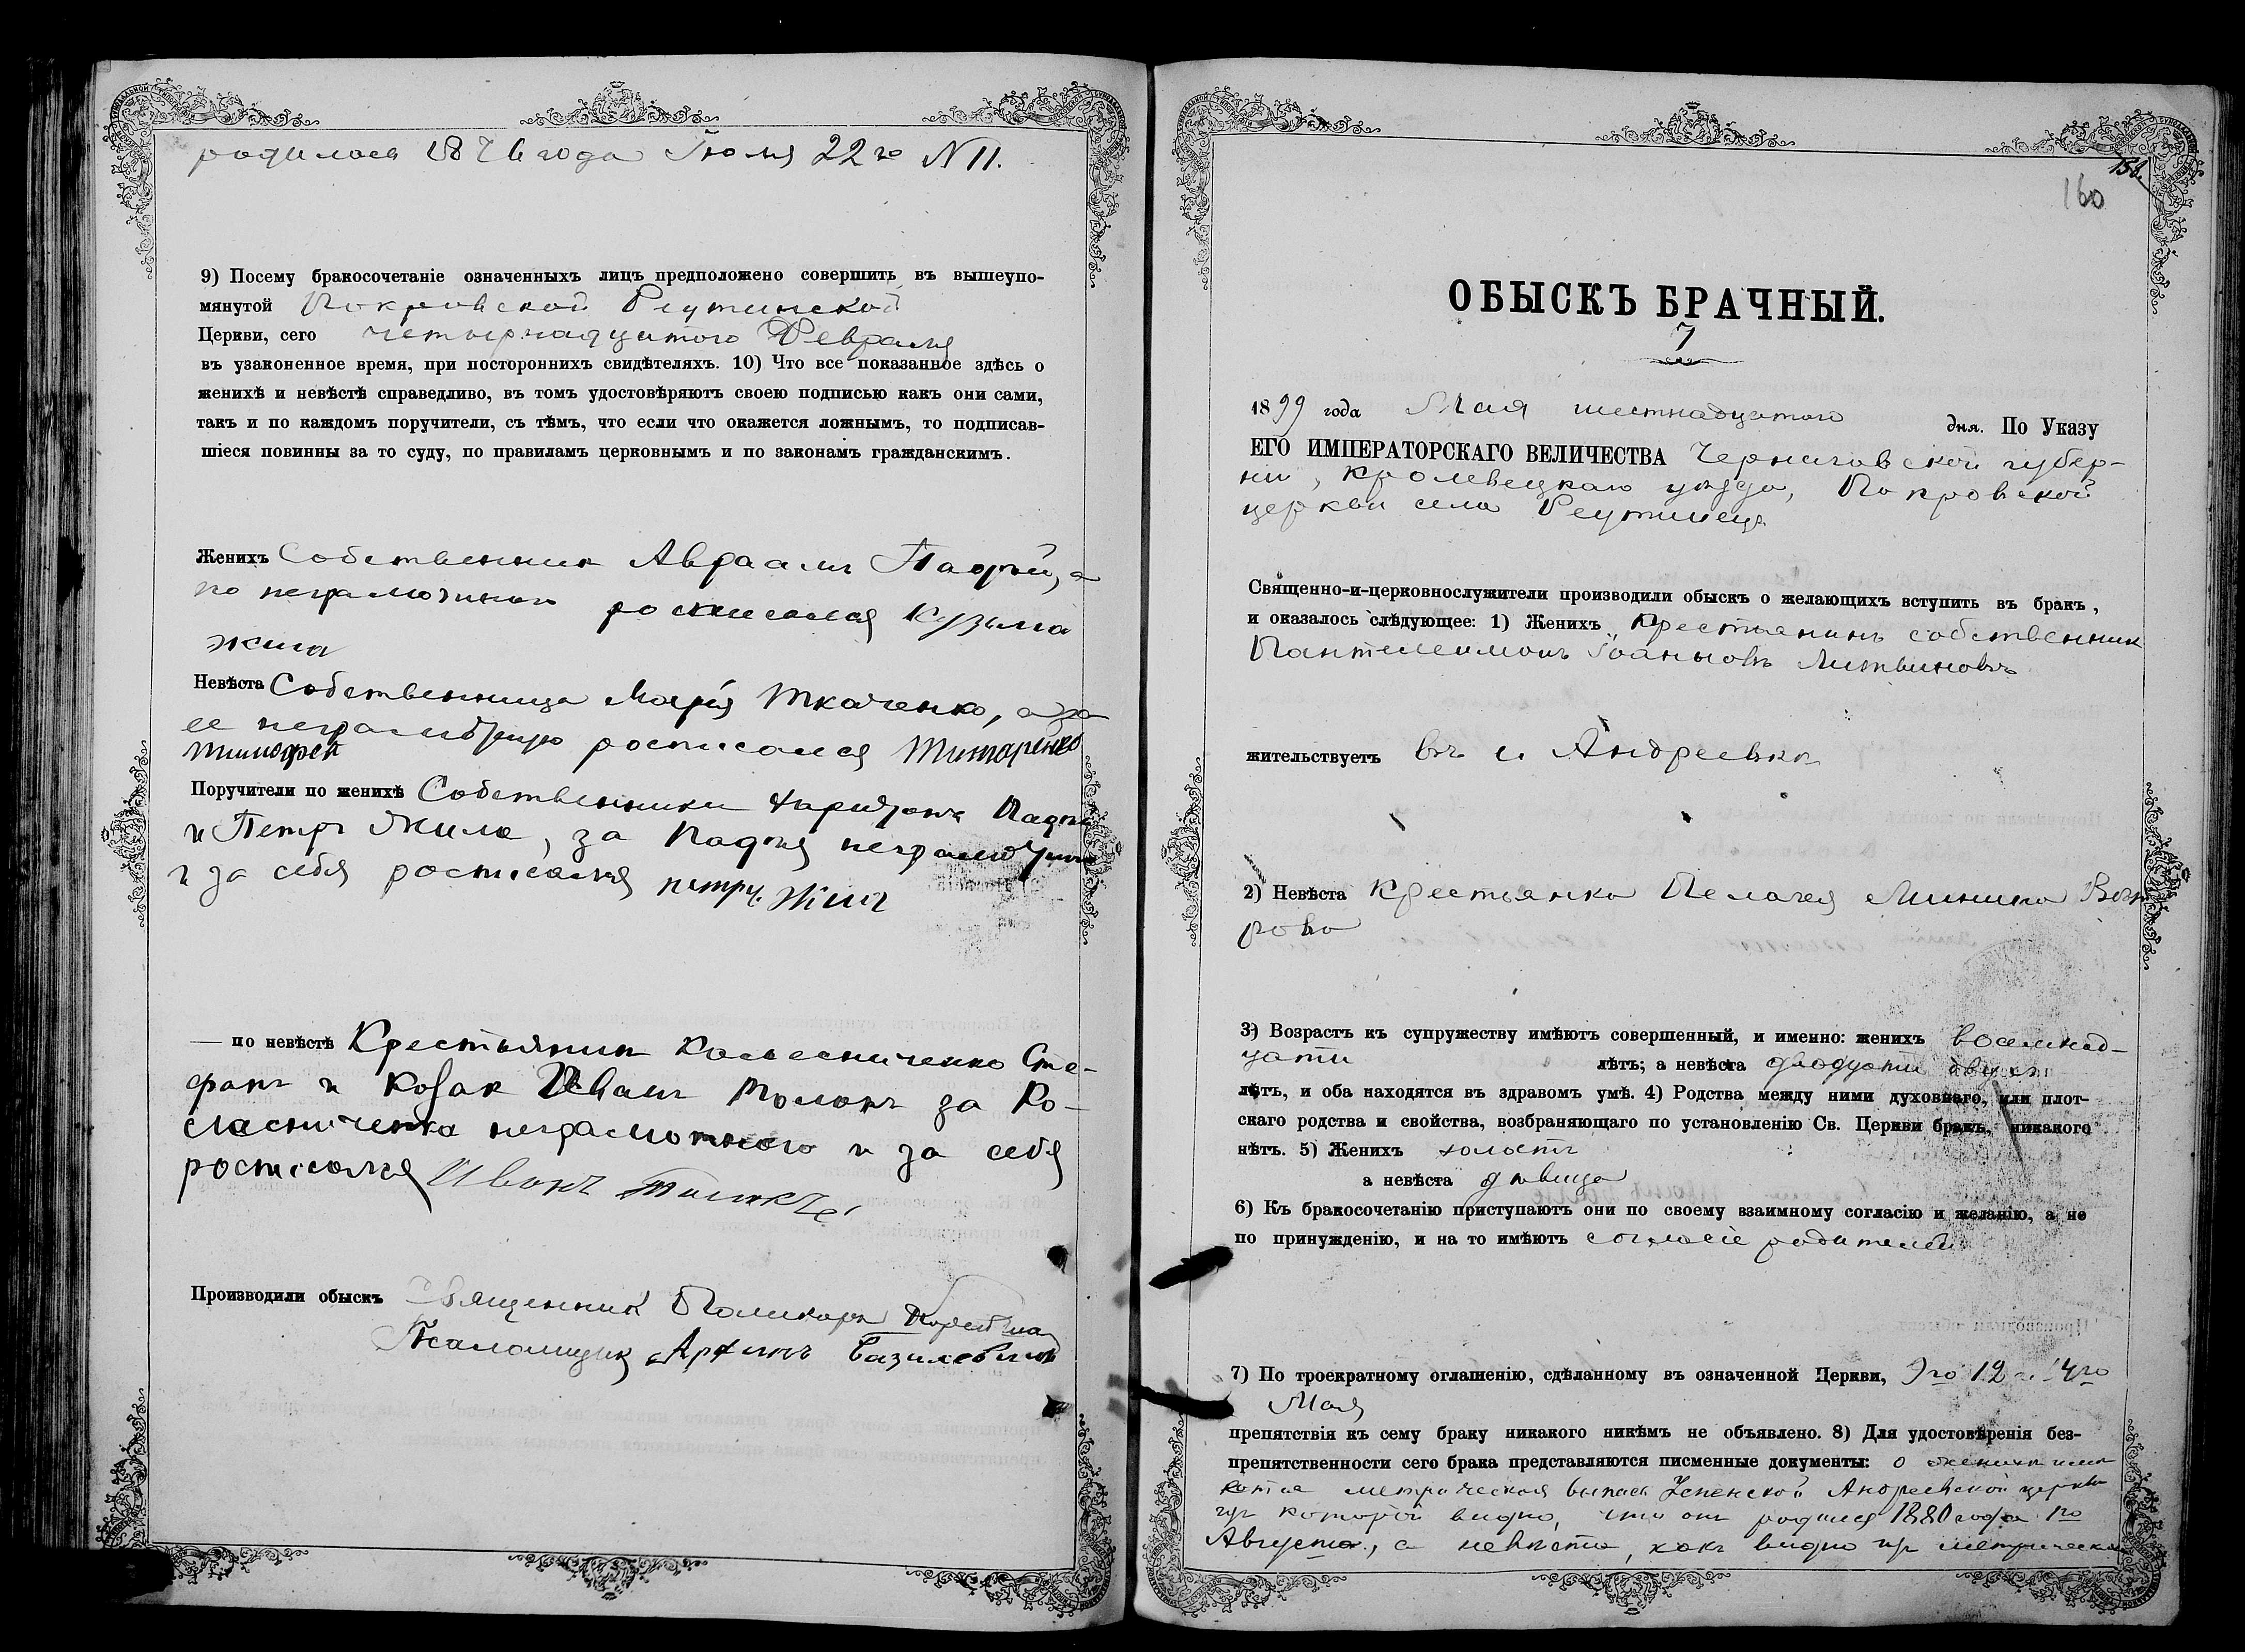 родилась 1876 года Іюля 22го N 11.
9) Посему бракосочетаніе означенныхъ лицъ предположено совершить въ вышеупо-
мянутой Покровской Реутинской
Церкви, сего четырнадцатого Февраля
въ узаконенное время, при постороннихъ свидѣтеляхъ. 10) Что все показанное здѣсь о
женихѣ и невѣстѣ справедливо, въ томъ удостовѣряютъ своею подписью какъ они сами,
такъ и по каждомъ поручители, съ тѣмъ, что если что окажется ложнымъ, то подписав-
шіеся повинны за то суду, по правиламъ церковнымъ и по законамъ гражданскимъ.
Женихъ Собственник Авраам а
по росписался Кузьма
Жила
Невѣста Собственница Марія Ткаченко, а за
ее неграмотную росписался Титаренко
Тимофей
Поручители по женихѣ Собственники Харитонъ
и Петръ Жила, за
и за себя росписался петръ Жила
— по невѣстѣ Крестьянин Колесниченко Сте-
фанъ и козак Иванъ за Ко-
лесниченка неграмотного и за себя
росписался Иванъ
Производили обыскъ Священник Поликарп
Псаломщик Базилевичъ
158.
160
ОБЫСКЪ БРАЧНЫЙ.
7
1899 года Мая шестнадцатого дня. По Указу
ЕГО ИМПЕРАТОРСКАГО ВЕЛИЧЕСТВА Черниговской губер-
нии, Кролевецкаго уѣзда, Покровской
церкви села Реутинец
Священно-и-церковнослужители производили обыскъ о желающихъ вступить въ бракъ,
и оказалось слѣдующее: 1) Женихъ Крестьянинъ собственник
Пантелеимонъ Іоанновъ Литвиновъ
жительствуетъ въ с. Андреевкѣ
2) Невѣста Крестьянка Пелагея Минина
рова
3) Возрастъ къ супружеству имѣютъ совершенный, и именно: женихъ восемнад-
цати лѣтъ; а невѣста двадцати двухъ
лѣтъ, и оба находятся въ здравомъ умѣ. 4) Родства между ними духовнаго, или плот-
скаго родства и свойства, возбраняющаго по установленію Св. Церкви бракъ, никакого
нѣтъ. 5) Женихъ холостъ
а невѣста дѣвица
6) Къ бракосочетанію приступаютъ они по своему взаимному согласію и желанію, а не
по принужденію, и на то имѣютъ согласіе родителей
7) По троекратному оглашенію, сдѣланному въ означенной Церкви, 9го 12 и 14го
Мая
препятствія къ сему браку никакого никѣмъ не объявлено. 8) Для удостовѣренія без-
препятственности сего брака представляются писменные документы: о женихѣ
метрическая выпись Успенской Андреевской церкви
из которой видно, что он родился 1880 года 1го
Августа, а невѣста, как видно из метрической